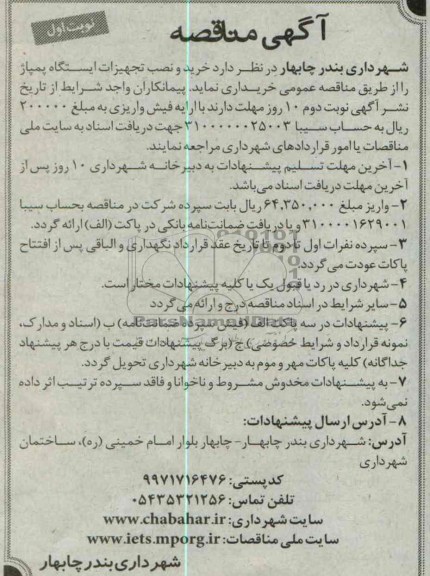 نوبت اول
آگهی مناقصه
شهرداری بندر چابهار در نظر دارد خرید و نصب تجهیزات ایستگاه پمپاژ
را از طریق مناقصه عمومی خریداری نماید. پیمانکاران واجد شرایط از تاریخ
نشر آگهی نوبت دوم ۱۰ روز مهلت دارند با ارایه فیش واریزی به مبلغ ۲۰۰۰۰۰
ریال به حساب سیبا ۳۱۰۰۰۰۰۰۲۵۰۰۳ جهت دریافت اسناد به سایت ملی
مناقصات یا امور قراردادهای شهرداری مراجعه نمایند.
۱- آخرین مهلت تسلیم پیشنهادات به دبیرخانه شهرداری ۱۰ روز پس از
آخرین مهلت دریافت اسناد می‌باشد.
۲- واریز مبلغ ۶۴,۳۵۰,۰۰۰ ریال بابت سپرده شرکت در مناقصه بحساب سیبا
۳۱۰۰۰۰۱۶۲۹۰۰۱ و یا دریافت ضمانت‌نامه بانکی در پاکت (الف) ارائه گردد.
۳- سپرده نفرات اول تا دوم تا تاریخ عقد قرارداد نگهداری و الباقی پس از افتتاح
پاکات عودت می گردد
۴- شهرداری در رد یا قبول یک یا کلیه پیشنهادات مختار است.
۵- سایر شرایط در اسناد مناقصه درج و ارائه می گردد
۶- پیشنهادات در سه پاکت الف (فیش سپرده ضمانت‌نامه) ب (اسناد و مدارک،
نمونه قرارداد و شرایط خصوصی) ج (برگ پیشنهادات قیمت با درج هر پیشنهاد
جداگانه) کلیه پاکات مهر و موم به دبیرخانه شهرداری تحویل گردد.
۷- به پیشنهادات مخدوش مشروط و ناخوانا و فاقد سپرده ترتیب اثر داده
نمی‌شود.
۸- آدرس ارسال پیشنهادات:
آدرس: شهرداری بندر چابهار- چابهار بلوار امام خمینی (ره)، ساختمان
شهرداری
کدپستی: ۹۹۷۱۷۱۶۴۷۶
تلفن تماس: ۰۵۴۳۵۳۲۱۲۵۶
سایت شهرداری: www.chabahar.ir
سایت ملی مناقصات: www.iets.mporg.ir
شهرداری بندر چابهار